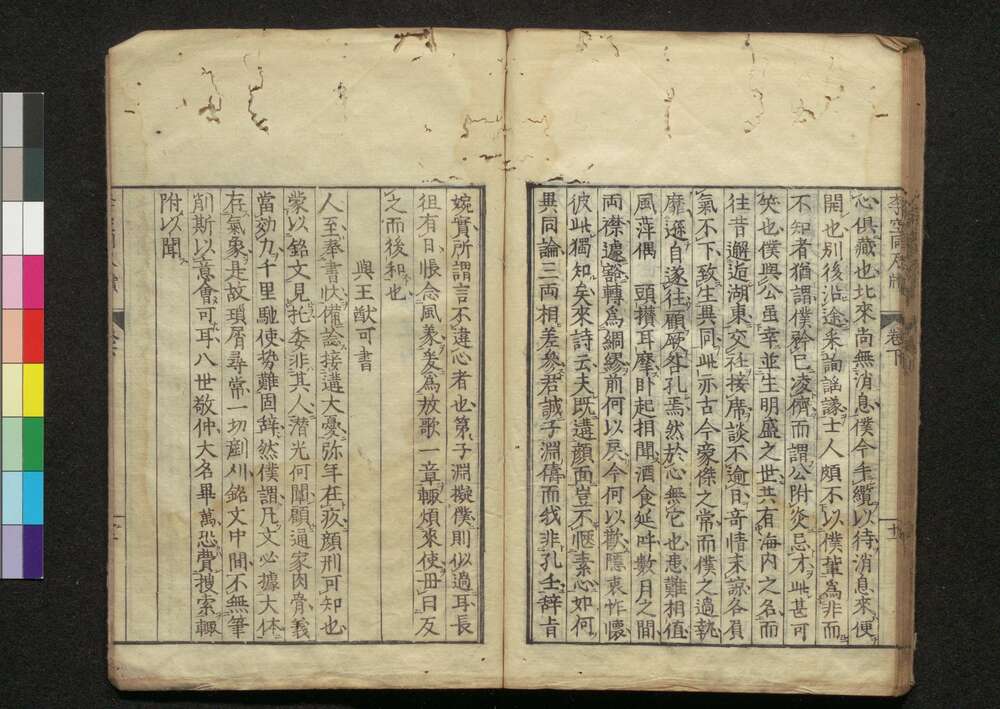 李空同尺牘 卷下 十
心俱藏也北來尚無消息僕今年纜以待消息來便
開也別後沿途采詢謡謙士人頗不以僕輩為非而
不知者猶謂僕矜已凌儕而謂公附炎忌才此甚可
笑也僕與公虽幸並生明盛之世共有海内之名而
往昔邂逅湖東交社接席談不逾日竒情末諒各負
氣不下致生異同此亦古今豪傑之常而僕之過執
靡遜自遂往顧厥咎孔焉然於心無它也患難相值
風萍偶 頭攅耳摩卧起相聞酒食延呼數月之間
両襟遽豁轉為綢繆前何以戾今何以歡隱衷怍懷
彼此獨知矣來詩云夫既遘顔面豈不愜素心如何
異同論三両相差參君誠子淵儔而我非孔壬辞肯
婉實所謂言不違心者也第子淵擬僕則似過耳長
徂有日悵念風義爰為放歌一章輙煩來使毌曰反
之而後和也
與王猷可書
人至奉書状備諗接遘大憂弥年在疚顔刑可知也
蒙以銘文見托委非其人潜光何闡顧通家肉骨義
當効力千里馳使势難固辞然僕謂凡文必據大体
存氣象是故瑣屑尋常一切劉刈銘文中間不無筆
削斯以意會可耳八世敬仲大名畢萬恐費搜索輙
附以聞